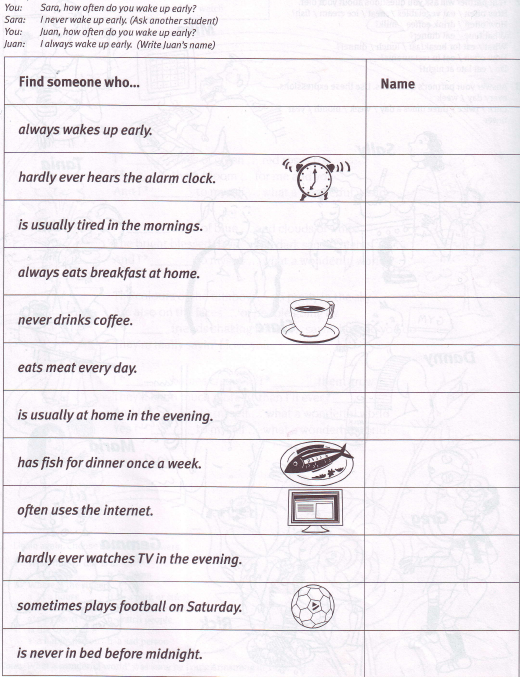 You: Sara, how often do you wake up early?
Sara: I never wake up early. (Ask another student)
You: Juan, how often do you wake up early?
Juan: I always wake up early. (Write Juan's name)
Find someone who... Name
always wakes up early.
hardly ever hears the alarm clock.
is usually tired in the mornings.
always eats breakfast at home.
never drinks coffee.
eats meat every day.
is usually at home in the evening.
has fish for dinner once a week.
often uses the internet.
hardly ever watches TV in the evening.
sometimes plays football on Saturday.
is never in bed before midnight.